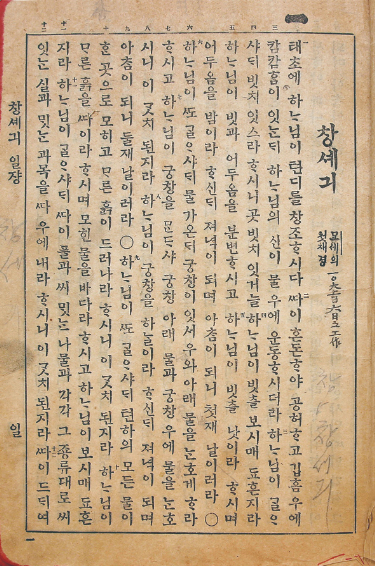 창셰긔
모세의
첫재경
태초에 하ᄂᆞ님이 텬디를 창조ᄒᆞ시다 ᄯᅡ이 혼돈ᄒᆞ야 공허ᄒᆞ고 깁흠 우에
캄캄홈이 잇ᄂᆞᆫᄃᆡ 하ᄂᆞ님의 신이 물 우에 운동ᄒᆞ시더라 하ᄂᆞ님이 ᄀᆞᆯᄋᆞ
샤ᄃᆡ 빗치 잇스라 ᄒᆞ시니 곳 빗치 잇거ᄂᆞᆯ 하ᄂᆞ님이 빗츨 보시매 됴흔지라
하ᄂᆞ님이 빗과 어두옴을 분변ᄒᆞ시고 하ᄂᆞ님이 빗츨 낫이라 ᄒᆞ시며
어두옴을 밤이라 ᄒᆞ신ᄃᆡ 져녁이 되며 아ᄎᆞᆷ이 되니 첫재 날이러라 ○
하ᄂᆞ님이 ᄯᅩ ᄀᆞᆯᄋᆞ샤ᄃᆡ 물 가온ᄃᆡ 궁창이 잇서 우와 아래 물을 ᄂᆞᆫ호게 ᄒᆞ라
ᄒᆞ시고 하ᄂᆞ님이 궁창을 ᄆᆞᆫᄃᆞ샤 궁창 아래 물과 궁창 우에 물을 ᄂᆞᆫ호
시니 이 ᄀᆞᆺ치 된지라 하ᄂᆞ님이 궁창을 하ᄂᆞᆯ이라 ᄒᆞ신ᄃᆡ 져녁이 되며
아ᄎᆞᆷ이 되니 둘재 날이러라 ○ 하ᄂᆞ님이 ᄯᅩ ᄀᆞᆯᄋᆞ샤ᄃᆡ 텬하의 모든 물이
ᄒᆞᆫ 곳으로 모히고 ᄆᆞ른 흙이 드러나라 ᄒᆞ시니 이 ᄀᆞᆺ치 된지라 하ᄂᆞ님이
ᄆᆞ른 흙을 ᄯᅡ이라 ᄒᆞ시며 모힌 물을 바다라 ᄒᆞ시고 하ᄂᆞ님이 보시매 됴흔
지라 하ᄂᆞ님이 ᄀᆞᆯᄋᆞ샤ᄃᆡ ᄯᅡ이 풀과 씨 ᄆᆡᆺᄂᆞᆫ 나물과 각각 그 죵류대로 씨
잇ᄂᆞᆫ 실과 ᄆᆡᆺᄂᆞᆫ 과목을 ᄯᅡ 우에 내라 ᄒᆞ시니 이 ᄀᆞᆺ치 된지라 ᄯᅡ이 드ᄃᆡ여
창셰긔 일쟝
일